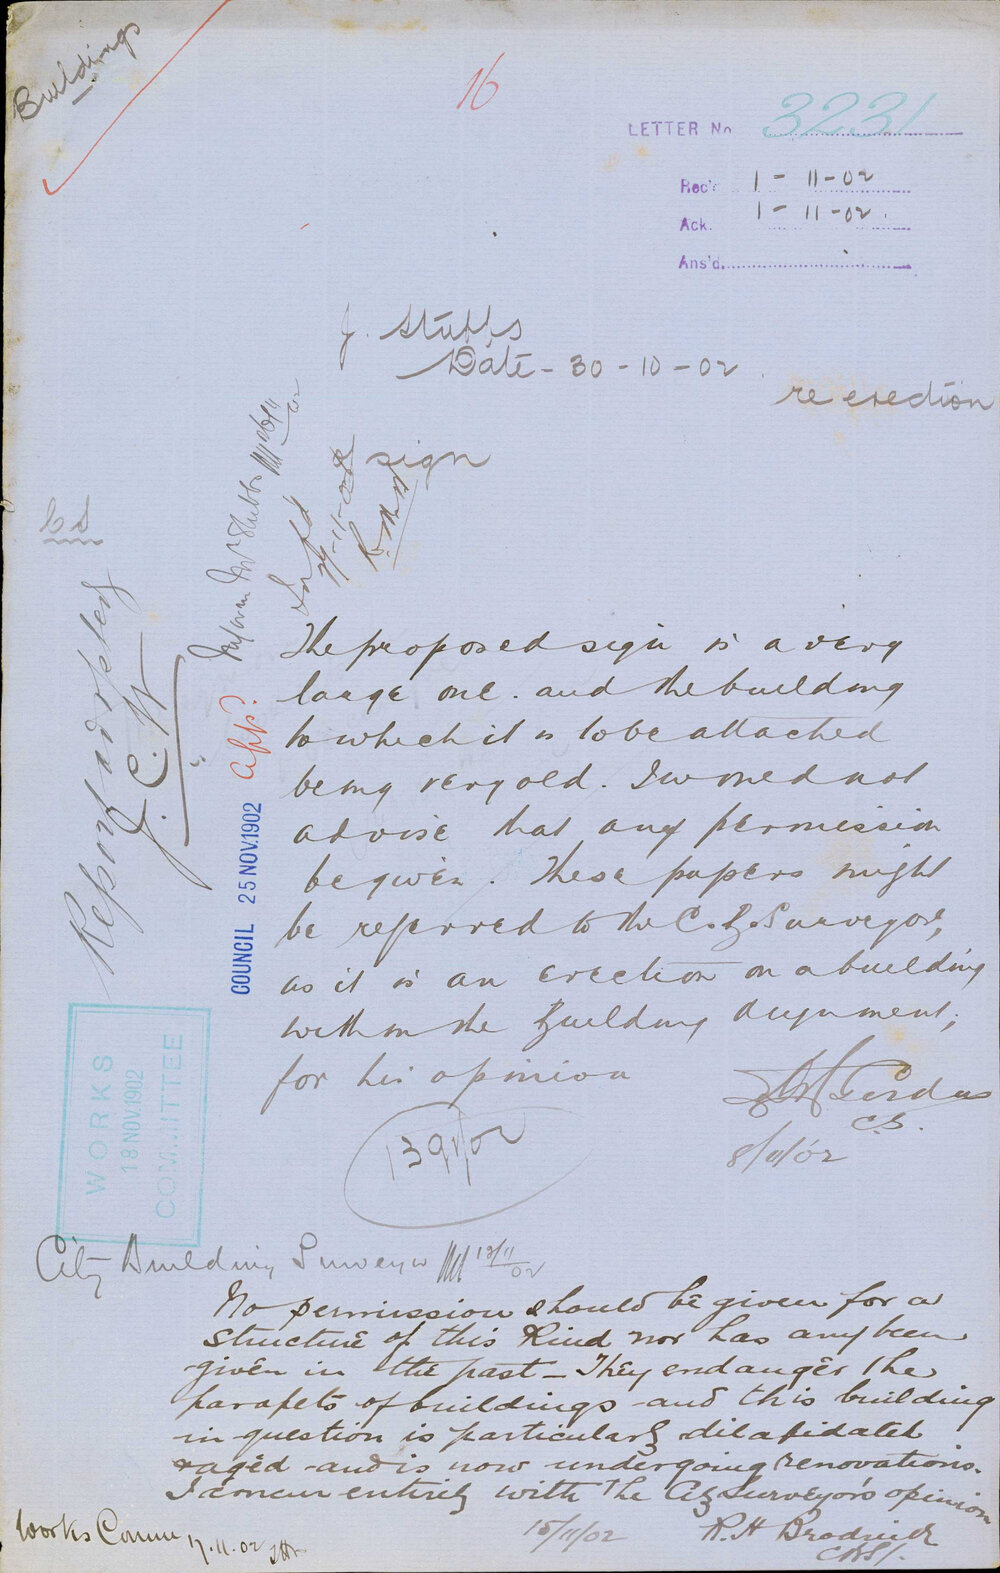 Buildings
16
LETTER No 3231
Rec'd 1-11-02
Ack. 1-11-02.
Ans'd.
J. Stubbs
Date - 30-10-02
re erection
sign
Inform Mr Stubbs
Inf'd
27-11-02
CS
Report adopted
J.C.W
App?
COUNCIL 25 NOV. 1902
The proposed sign is a very
large one. and the building
to which it is to be attached
being very old. I would not
advise that any permission
be given. These papers might
be referred to the C. B. Surveyor,
as it is an erection on a building
within the Building alignment,
for his opinion
C.S.
8/11/02
WORKS
18 NOV. 1902
COMMITTEE
1391/02
City Building Surveyor 13/11/02
No permission should be given for a
structure of this kind nor has any been
given in the past - They endanger the
parapets of buildings and this building
in question is particularly dilapidated
& aged and is now undergoing renovations.
I concur entirely with the City Surveyor's opinion
15/11/02 R. H Brodrick
CBS/.
Works Comm 17.11.02